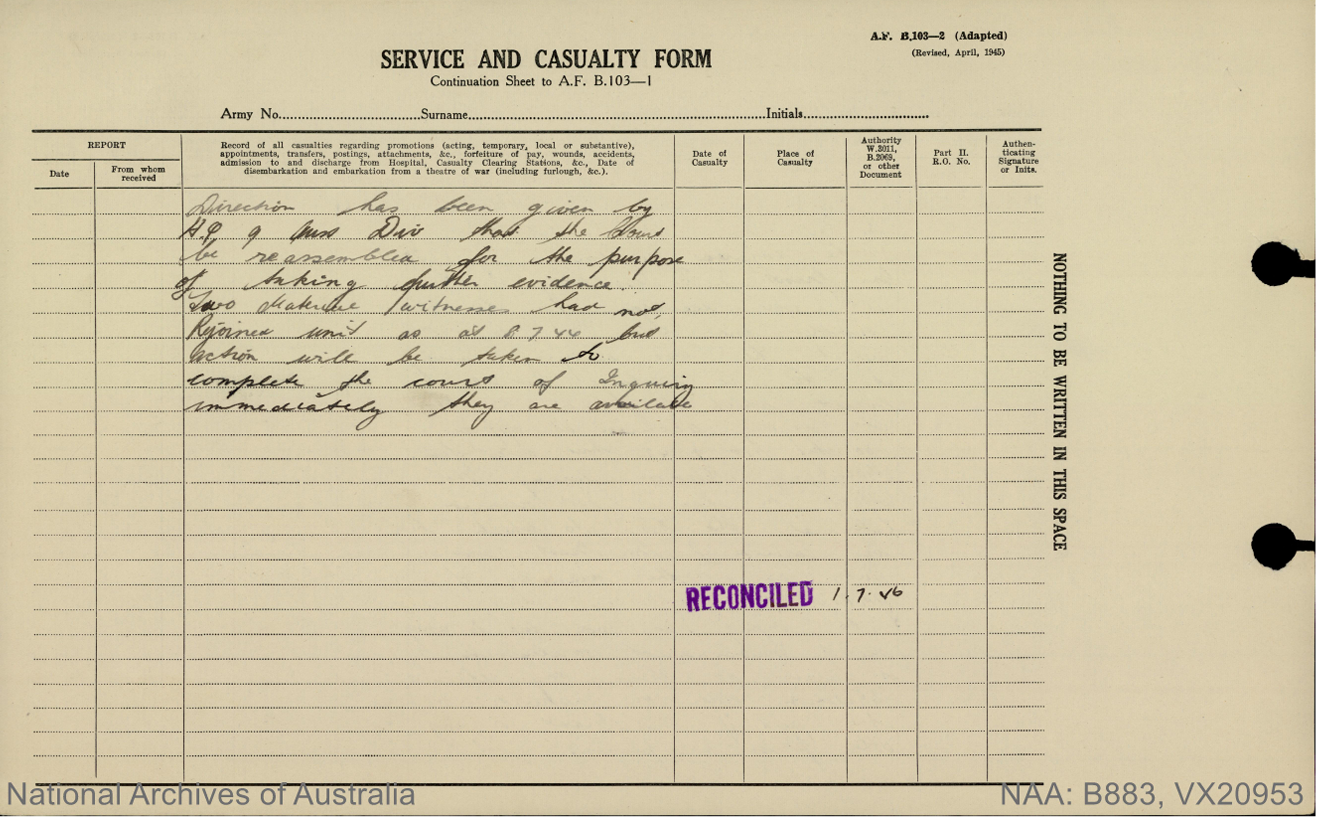 A.F. B.103—2 (Adapted)
(Revised, April, 1945)
SERVICE AND CASUALTY FORM
Continuation Sheet to A.F. B.103—1
Army No. Surname Initials
REPORT
Date
From whom received
Record of all casualties regarding promotions (acting, temporary, local or substantive),
appointments, transfers, postings, attachments, &c., forfeiture of pay, wounds, accidents,
admission to and discharge from Hospital, Casualty Clearing Stations, &c., Date of
disembarkation and embarkation from a theatre of war (including furlough, &c.).
Date of Casualty
Place of Casualty
Authority W.3011, B.2069, or other Document
Part II. R.O. No.
Authen-ticating Signature or Inits.
Direction has been given by
HQ 9 Aus Div that the Court
be reassembled for the purpose
of taking further evidence.
Two Material witnesses had not
Rejoined unit as at 8 7 44 but
action will be taken to
complete the court of Inquiry
immediately they are available
RECONCILED 1.7.46
NOTHING TO BE WRITTEN IN THIS SPACE
National Archives of Australia
NAA: B883, VX20953